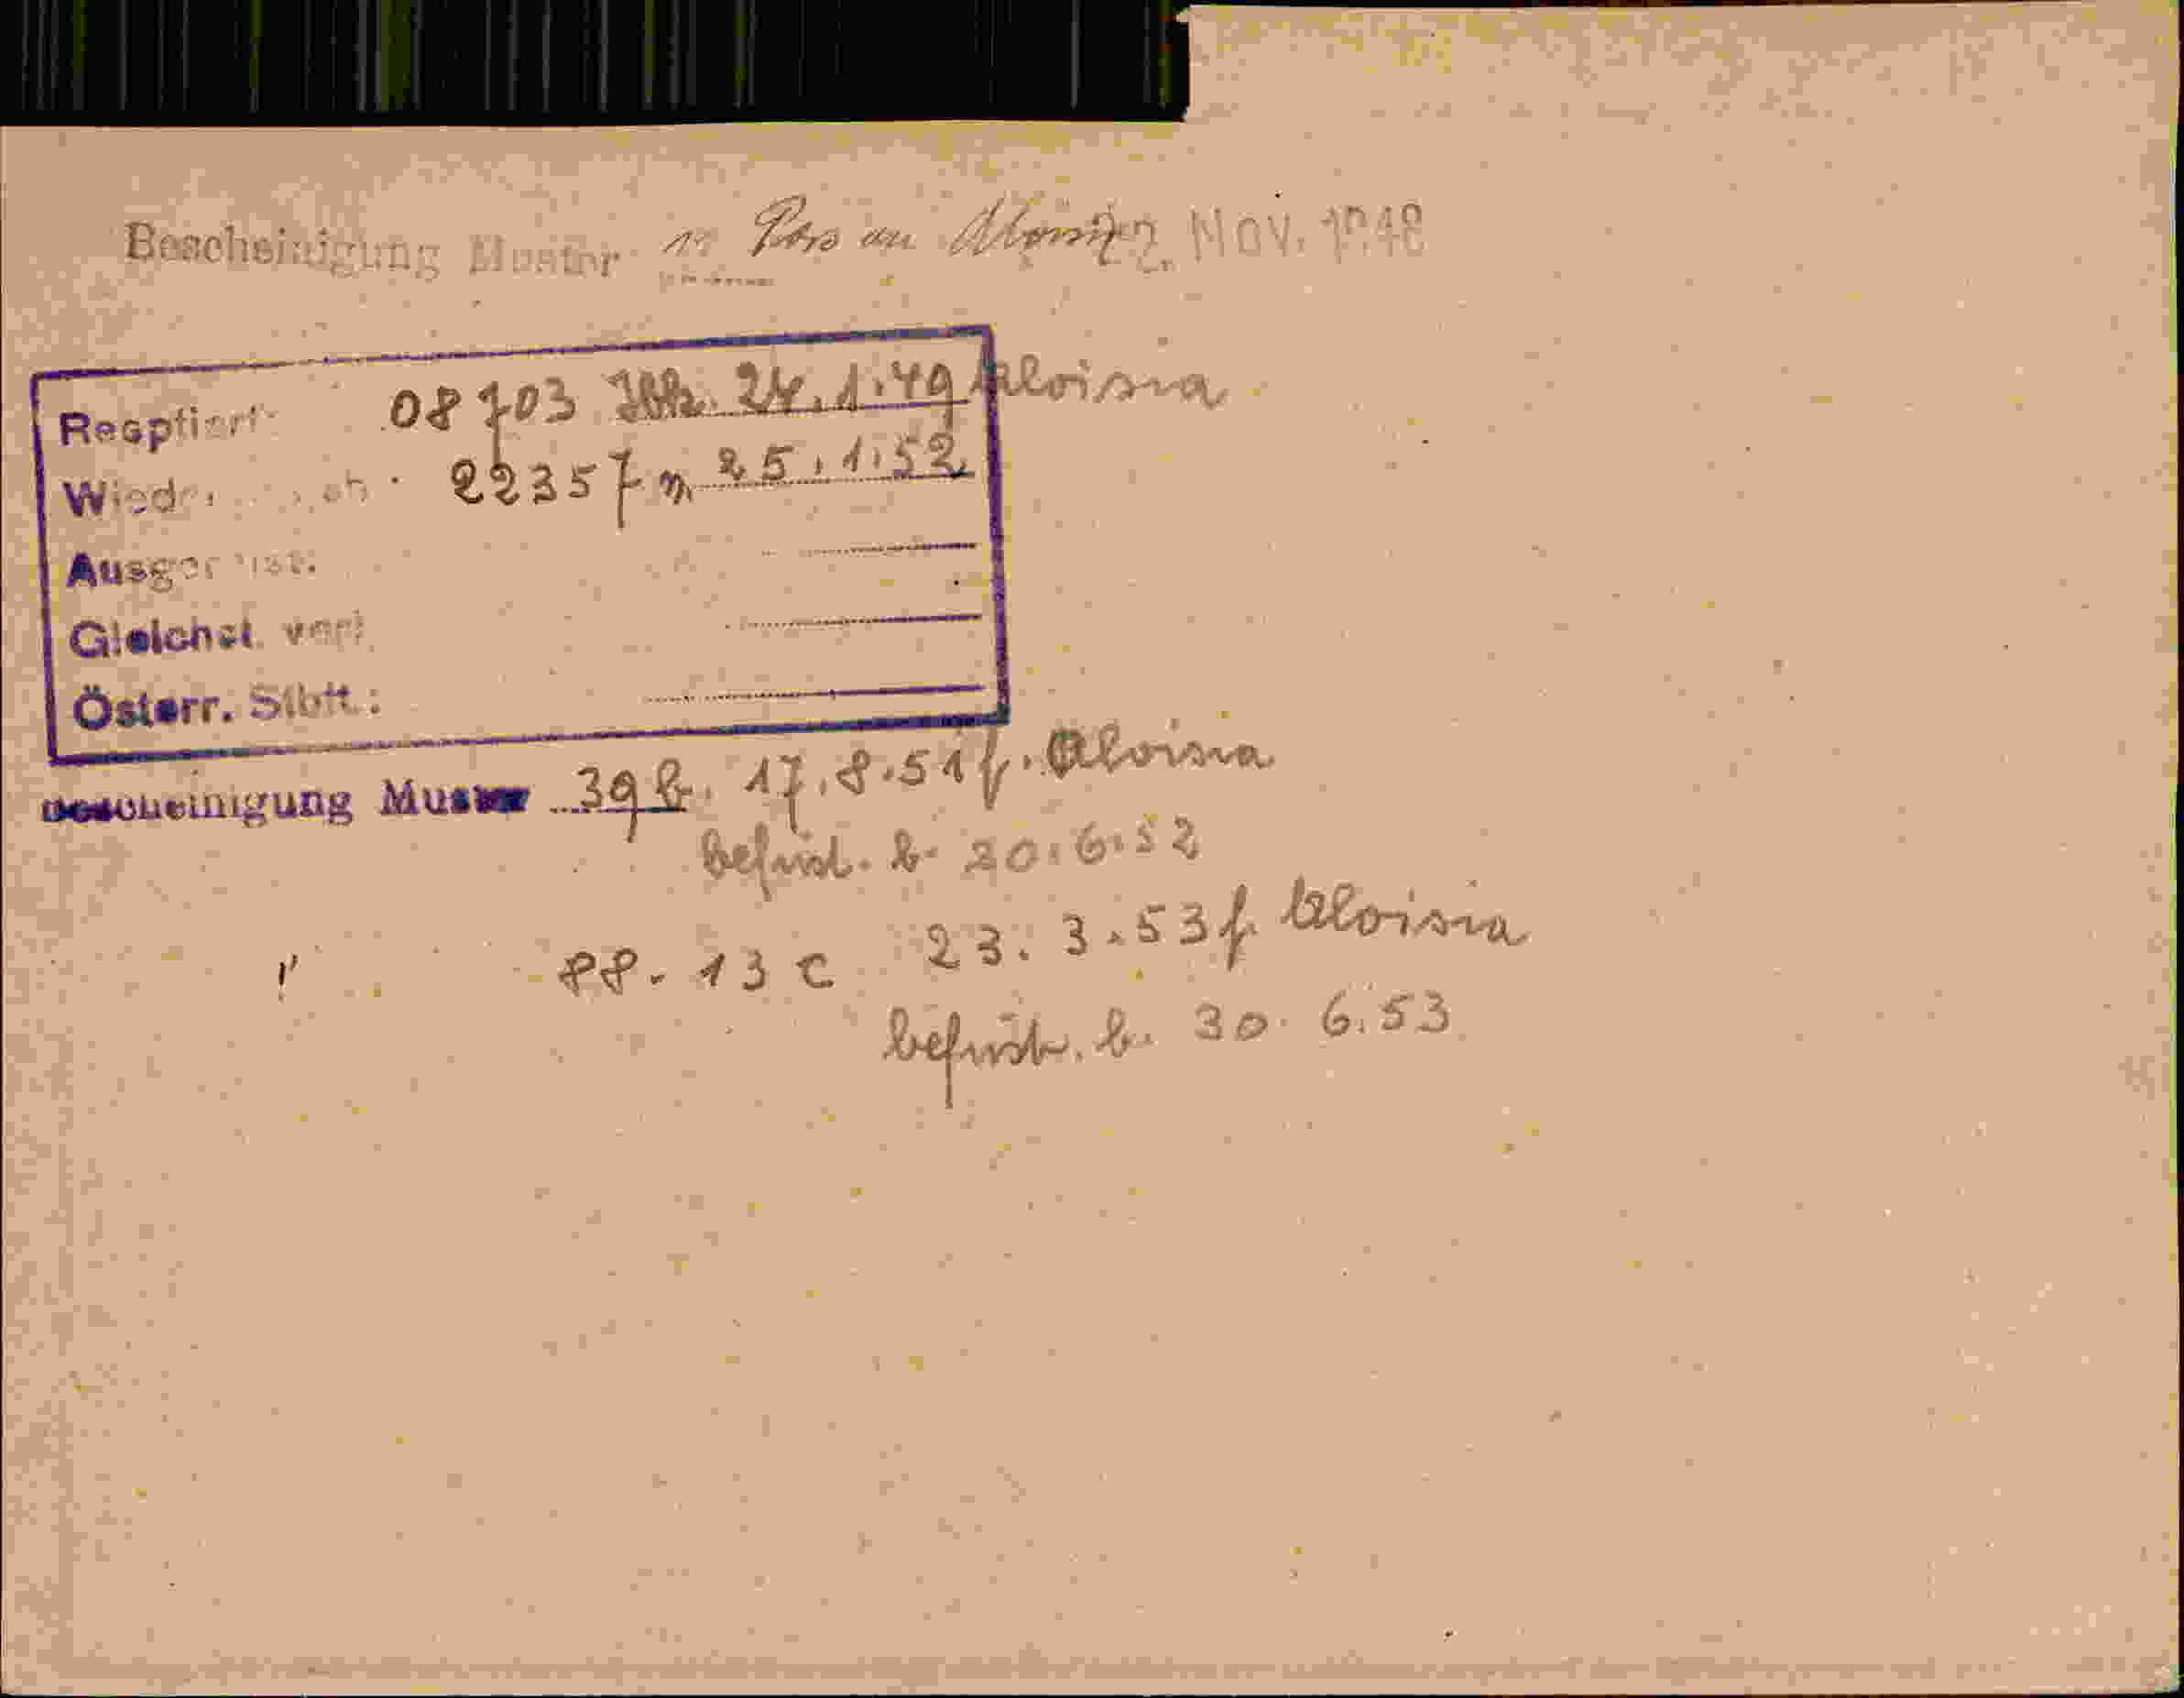 Bescheinigung Muster Pass an NOV. 1948
Reoptiert: 08703 24.1.49 Aloisia
22357 m 25.1.52
Gleichst.
Österr. Stbft.:
Bescheinigung Muster 39 b. 17.8.51 f. Aloisia
befrist. b. 30.6.52
88. 13 c 23. 3. 53 f. Aloisia
befrist. b. 30. 6. 53